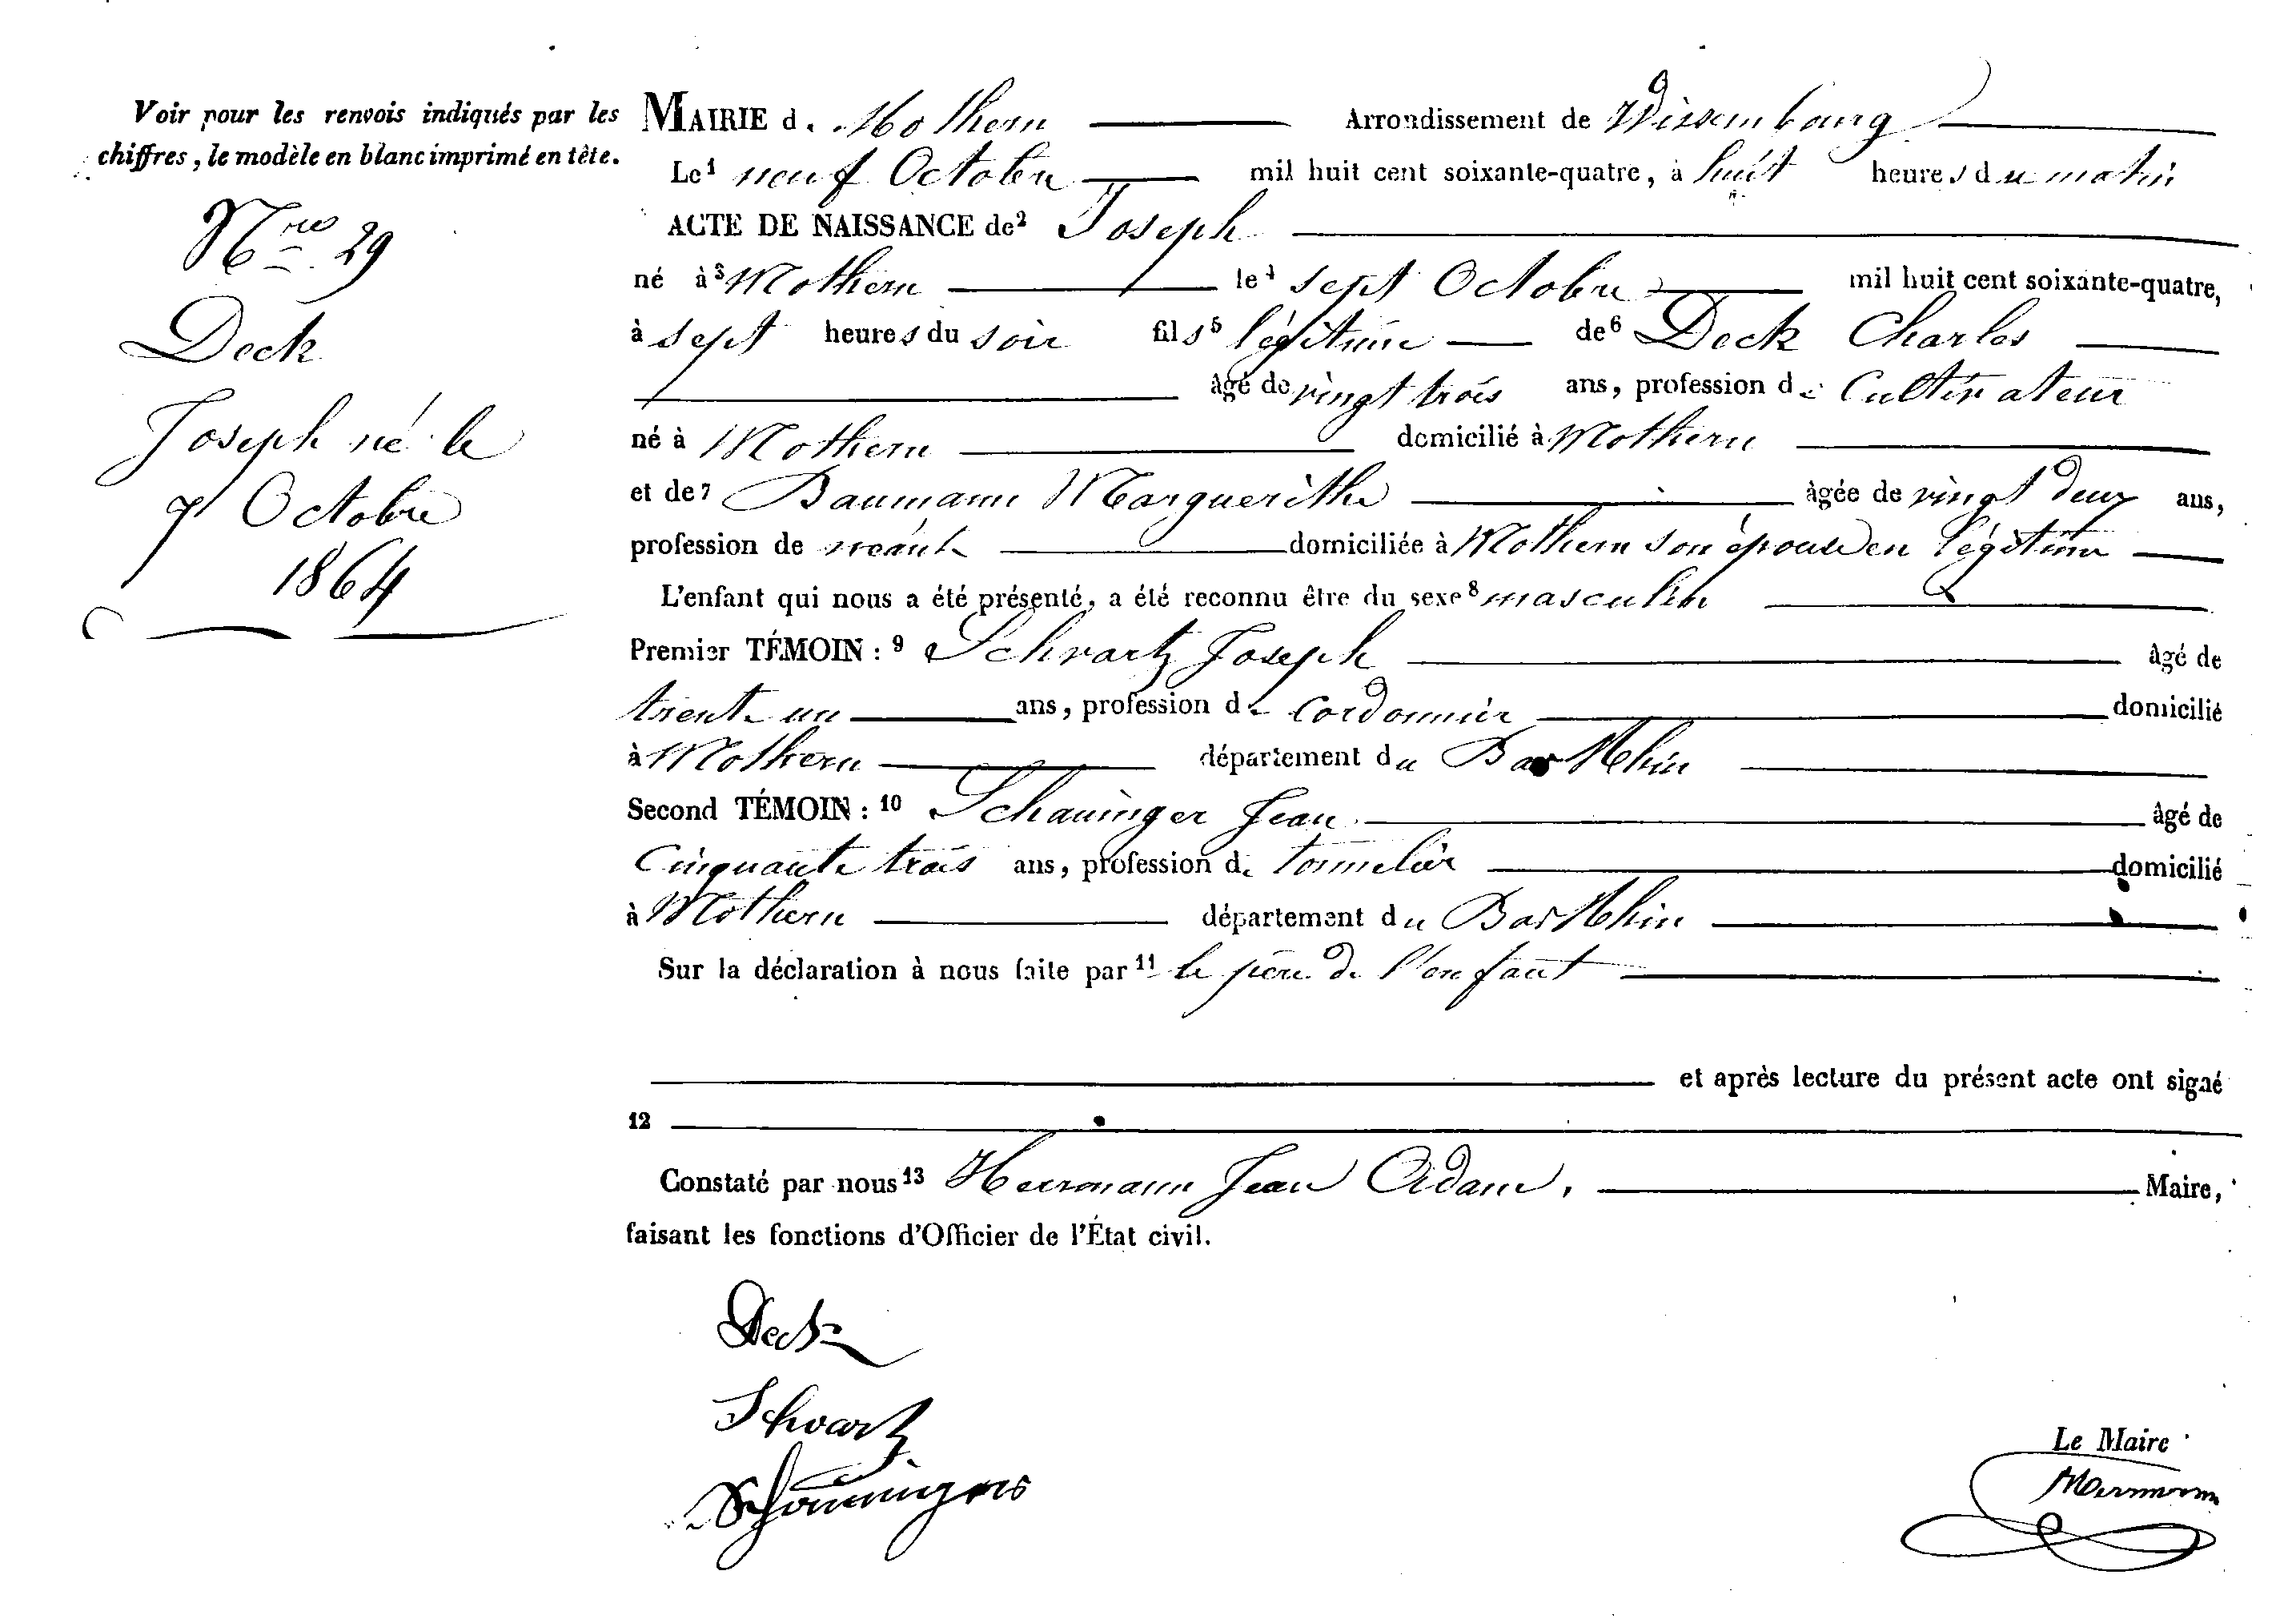 Voir pour les renvois indiqués par les
chiffres, le modèle en blanc imprimé en tête.
Nro 29
Deck
Joseph né le
7 Octobre
1864
MAIRIE d. Mothern Arrondissement de Wissembourg
Le 1 neuf Octobre mil huit cent soixante-quatre, à huit heures du matin
ACTE DE NAISSANCE de 2 Joseph
né à 3 Mothern le 4 sept Octobre mil huit cent soixante-quatre,
à sept heures du soir fils 5 légitime de 6 Deck Charles
âgé de vingt trois ans, profession de Cultivateur
né à Mothern domicilié à Mothern
et de 7 Baumann Marguerithe âgée de vingt deux ans,
profession de néant domiciliée à Mothern son épouse en légitime
L'enfant qui nous a été présenté, a été reconnu être du sexe 8 masculin
Premier TÉMOIN : 9 Schvartz Joseph âgé de
trente un ans, profession de Cordonnier domicilié
à Mothern département du Bas Rhin
Second TÉMOIN : 10 Schauinger Jean âgé de
Cinquante trois ans, profession de tonnelier domicilié
à Mothern département du Bas Rhin
Sur la déclaration à nous faite par 11 le père de l'enfant
et après lecture du présent acte ont signé
12
Constaté par nous 13 Herrmann Jean Adam, Maire,
faisant les fonctions d'Officier de l'État civil.
Deck
Schvartz
Le Maire